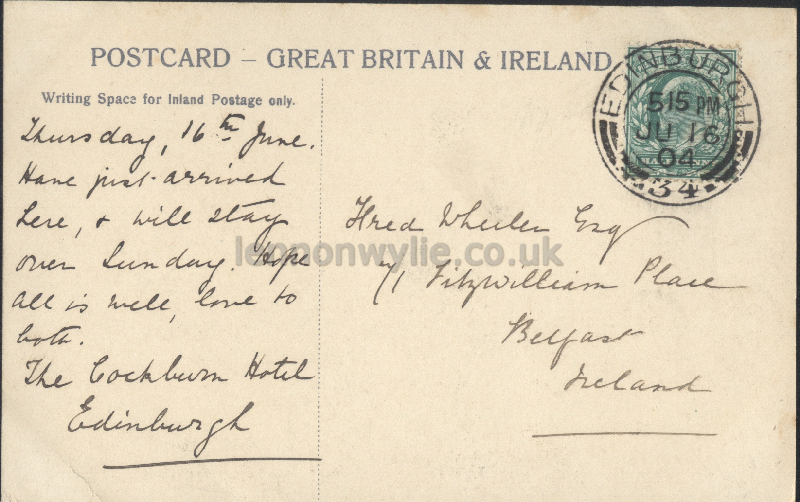 POSTCARD – GREAT BRITAIN & IRELAND
Writing Space for Inland Postage only.
EDINBURGH
515 PM
JU 16
04
34
Thursday, 16th June.
Have just arrived
here, & will stay
over Sunday. Hope
all is well, love to
both.
The Cockburn Hotel
Edinburgh
Fred Wheeler Esq
71 Fitzwilliam Place
Belfast
Ireland
lennonwylie.co.uk